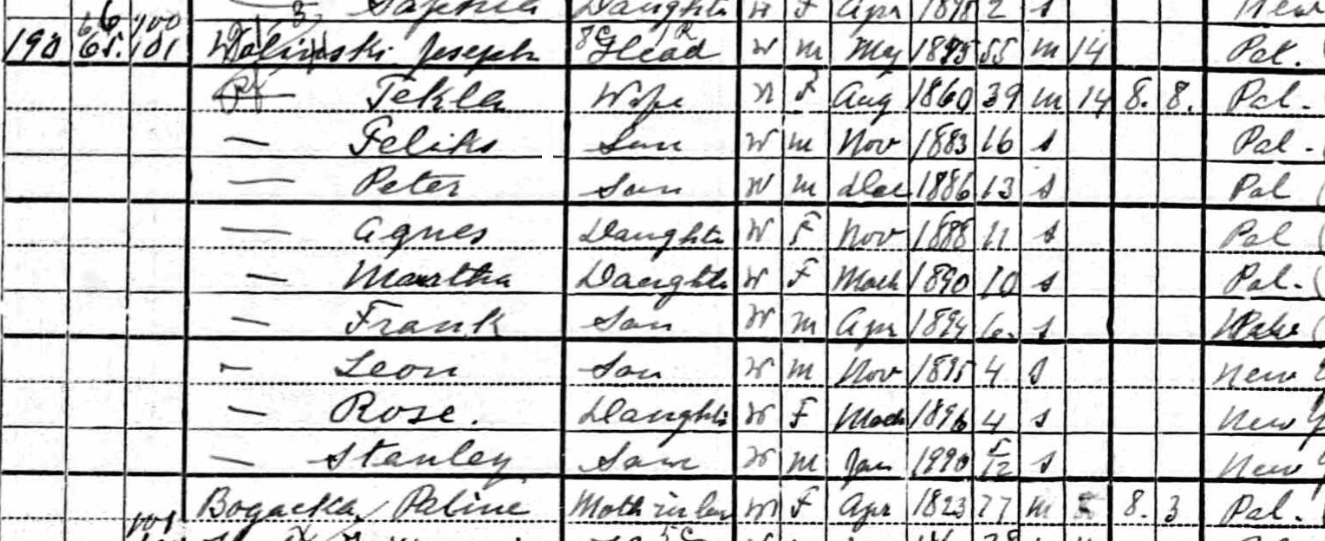 Daughter W F Apr 1898 2 s New
190 65. 101 Joseph Head W m May 55 m 14 Pol.
Tekla Wife W F Aug 1860 39 m 14 8. 8. Pol.
— Feliks Son W m Nov 1883 16 s Pol.
— Peter Son W m Dec 1886 13 s Pol
— Agnes Daughter W F Nov 1888 11 s Pol
— Martha Daughter W F Mach 1890 10 s Pol.
— Frank Son W m Apr 1894 6. s
— Leon Son W m Nov 1895 4 s New Y
— Rose. Daughter W F Mach 1896 4 s New Y
— Stanley Son W m Jan 1990 5/12 s New
Bogacka Paline Moth in law W F Apr 1823 77 m 8. 3 Pol.
101